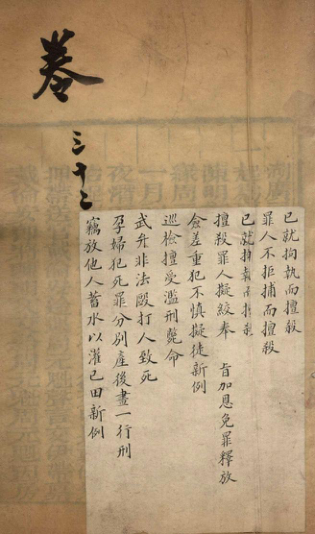 卷
三十二
已就拘執而擅殺
罪人不拒捕而擅殺
已就拘執而擅殺
擅殺罪人擬絞奉　旨加恩免罪釋放
僉差重犯不慎擬徒新例
巡檢擅受濫刑斃命
武弁非法毆打人致死
孕婦犯死罪分別產後畫一行刑
竊放他人蓄水以灌已田新例